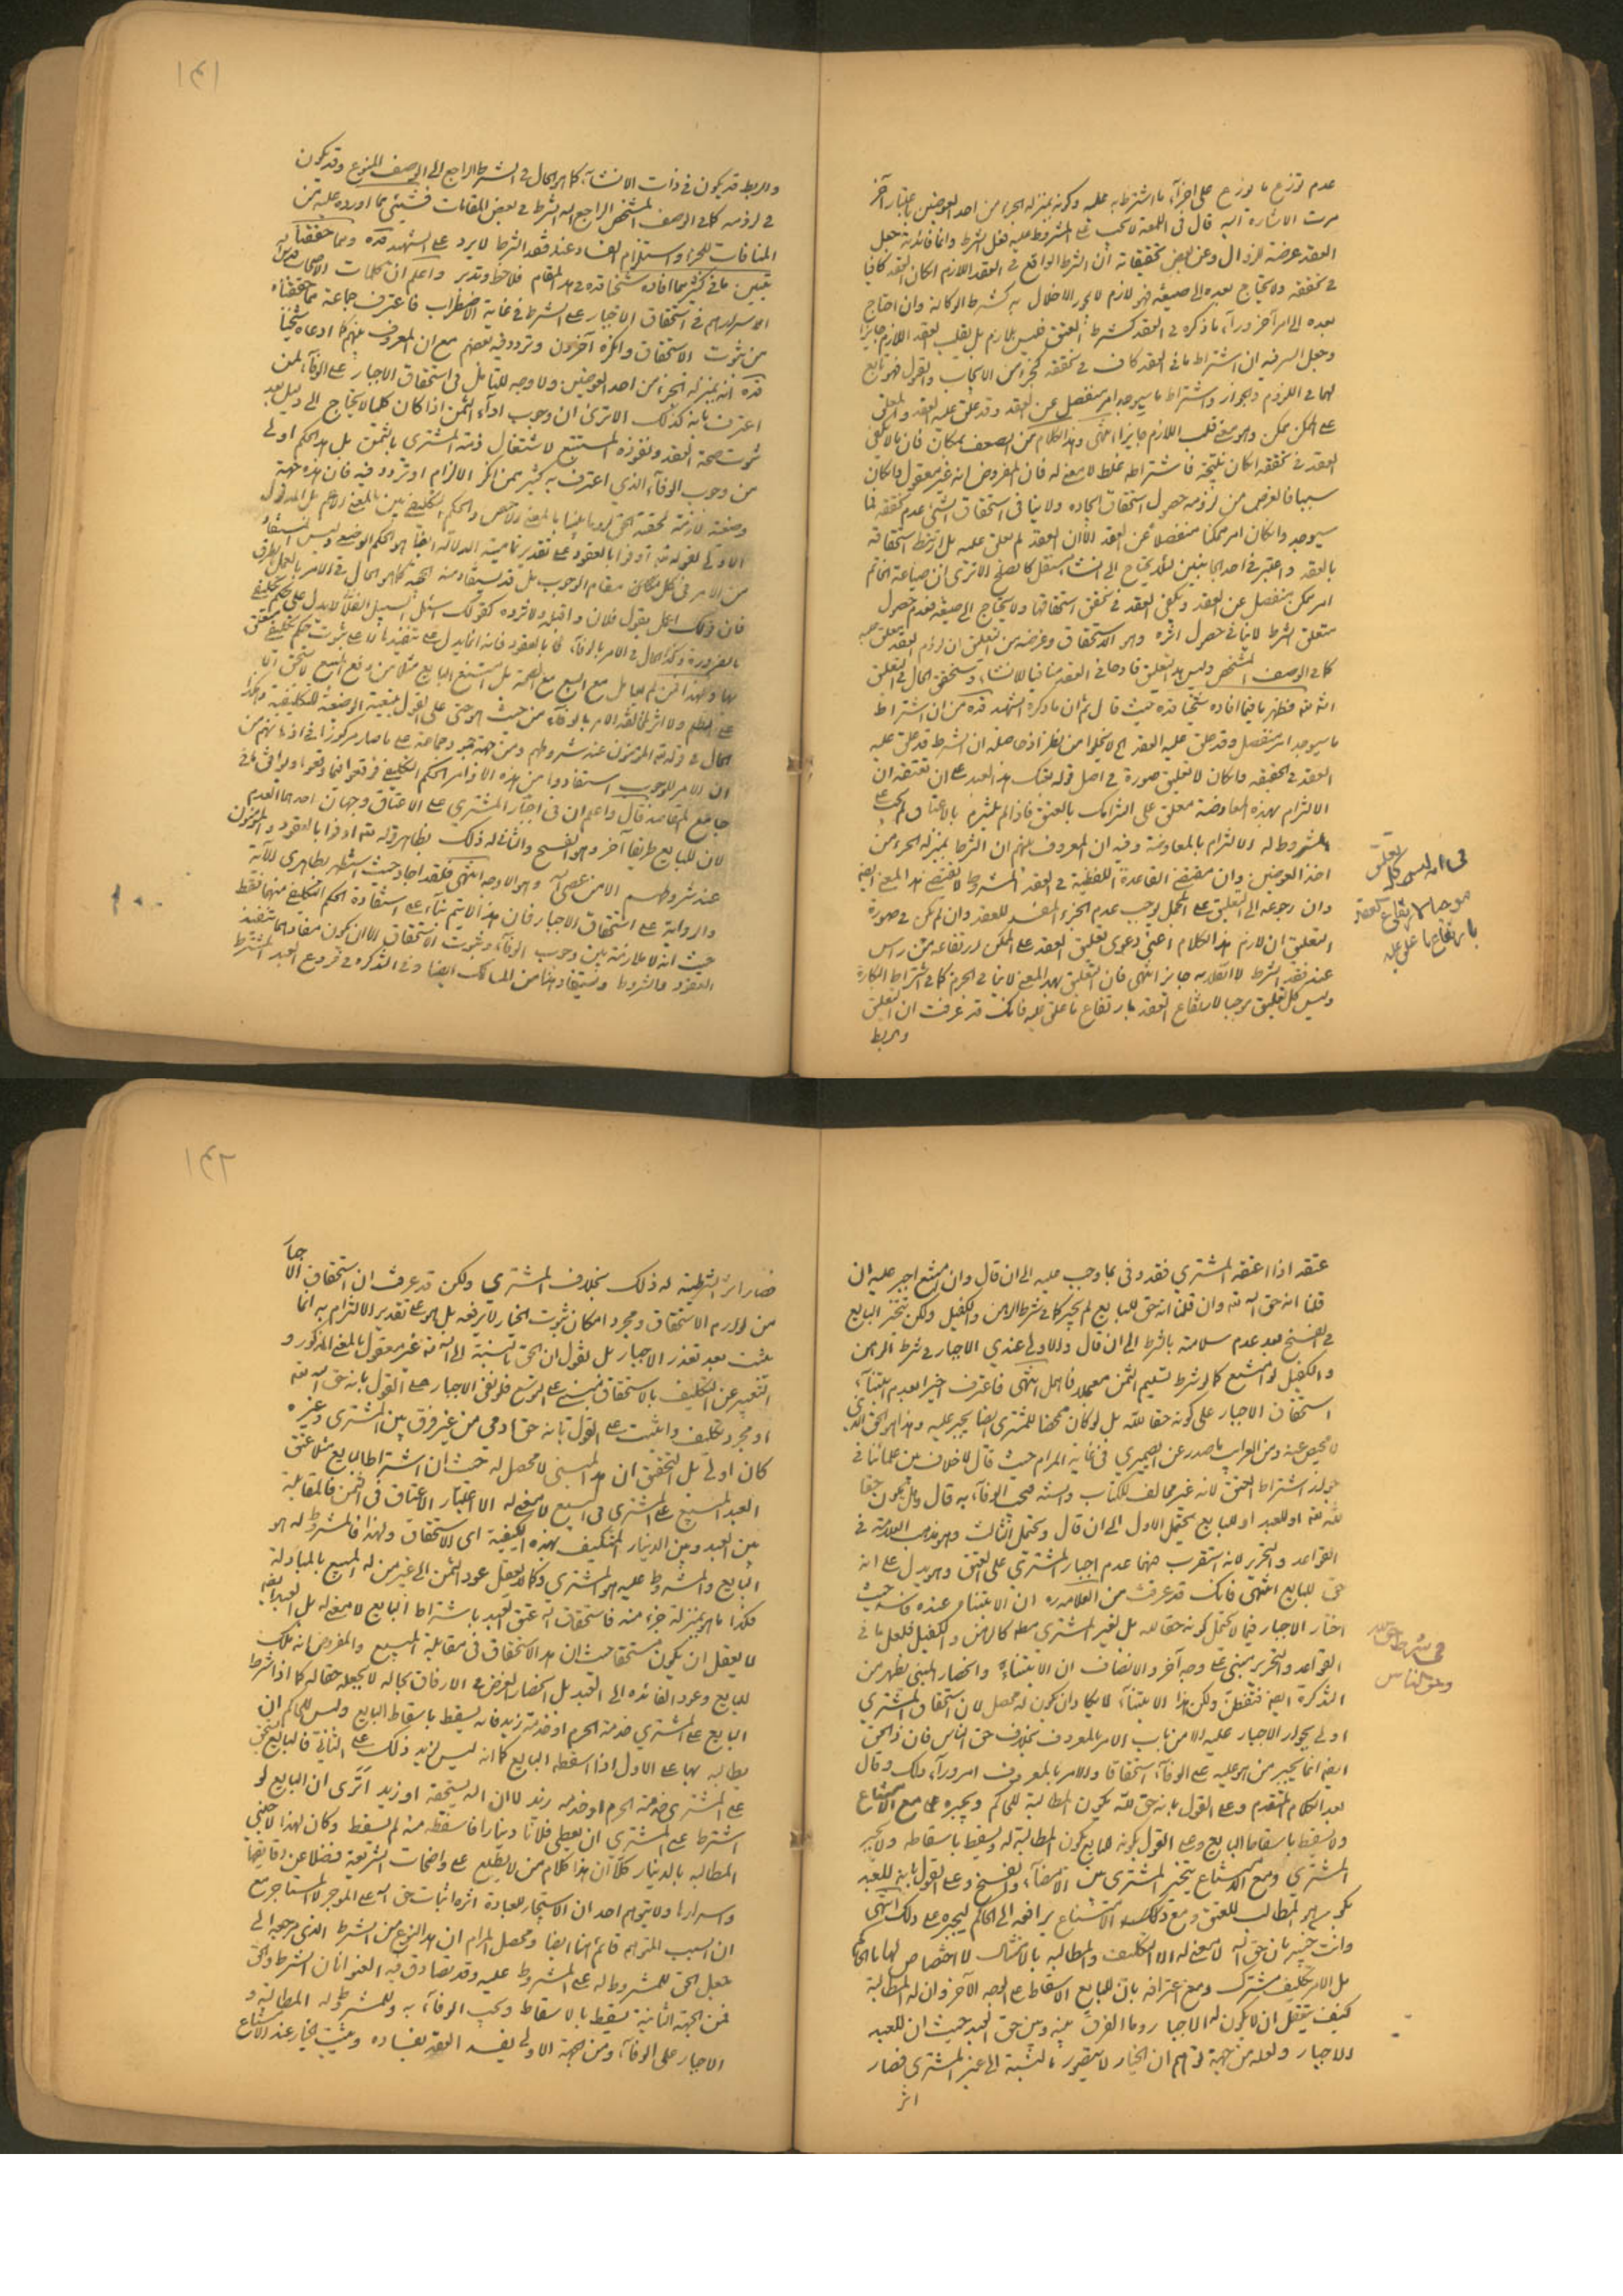 عدم توزع ما يوزع على اجزاء ما اشترط به عليه وكونه بمنزلة الجزء من احد العوضين باعتبار آخر
مرت الاشارة اليه قال في اللمعة لا يجب على المشروط عليه فعل الشرط وانما فائدته جعل
العقد عرضة للزوال وعن بعض تحقيقاته ان الشرط الواقع في العقد اللازم ان كان العقد كافيا
في تحققه ولا يحتاج بعده الى صيغة فهو لازم لا يجوز الاخلال به كشرط الوكالة وان احتاج
بعده الى امر آخر وراء ذكره في العقد كشرط العتق فليس بلازم بل يقلب العقد اللازم جايزا
وجعل السر فيه ان اشتراط ما في العقد كاف في تحققه كجزء من الايجاب والقبول فهو تابع
لهما في اللزوم والجواز واشتراط ما سيوجد امر منفصل عن العقد وقد علق عليه العقد والمعلق
على الممكن ممكن وهو معنى قلب اللازم جايزا انتهى وهذا الكلام من الضعف بمكان فان ما لا يكفي
العقد في تحققه ان كان نتيجة فاشتراطه غلط لا معنى له فان المفروض انه غير معقول وان كان
سببا فالغرض من لزومه حصول استحقاق ايجاده ولا ينافي استحقاق الشيء عدم تحققه لما
سيوجد وان كان امر ممكنا منفصلا عن العقد الا ان العقد لم يعلق عليه بل ارتبط استحقاقه
بالعقد واعتبر في احد الجانبين
امر ممكن منفصل عن العقد ويكفي العقد في تحقق استحقاقها ولا يحتاج الى صيغة فعدم حصول
متعلق الشرط لا ينافي حصول اثره وهو الاستحقاق وغرضه من التعلق ان لزوم العقد معلق عليه
كما في الوصف المشخص وليس هذا التعلق قادحا في العقد منافيا للانشاء وستحقق الحال في التعلق
انشاء الله فظهر ما فيما افاده شيخنا قده حيث قال ثم ان ما ذكره الشهيد قده من ان اشتراط
ما سيوجد امر منفصل وقد علق عليه العقد الخ لا يخلوا من نظر اذ حاصله ان الشرط قد علق عليه
العقد في الحقيقة وان كان لا تعليق صورة في اصل قوله بعتك هذا العبد على ان تعتقه ان
الالتزام بهذه المعاوضة معلق على التزامك بالعتق فاذا لم يلتزم بالاعتاق لم يجب على
المشروط له الالتزام بالمعاوضة وفيه ان المعروف بينهم ان الشرط بمنزلة الجزء من
احد العوضين وان مقتضى القاعدة اللفظية في العقد المشروط لا يقتضي هذا المعنى ايضا
وان رجوعه الى التعليق على المحتمل يوجب عدم الجزم المفسد للعقد وان لم يكن في صورة
التعليق ان لازم هذا الكلام اعني دعوى تعليق العقد على الممكن ارتفاعه من راس
عند فقد الشرط لا انقلابه جايزا انتهى فان التعليق بهذا المعنى لا ينافي الجزم كما في اشتراط البكارة
وليس كل تعليق موجبا لارتفاع العقد بارتفاع ما علق عليه فانك قد عرفت ان التعلق
والربط
في انه ليس كل تعليق
موجبا لارتفاع العقد
بارتفاع ما علق عليه
١٤١
والربط قد يكون في ذات الانشاء كما هو الحال في الشرط الراجع الى الوصف المنوع وقد يكون
في لزومه كما في الوصف المشخص الراجع اليه الشرط في بعض المقامات فشيء مما اورده عليه من
المنافات للجزم واستلزام الفساد عند فقد الشرط لا يرد على الشهيد قده ومما حققناه
يتبين ما في كثير مما افاده شيخنا قده في هذا المقام فلاحظ وتدبر واعلم ان كلمات الاصحاب قدس
الله اسرارهم في استحقاق الاجبار على الشرط في غاية الاضطراب فاعترف جماعة بما حققناه
من ثبوت الاستحقاق وانكره آخرون وتردد فيه بعضهم مع ان المعروف بينهم كما ادعاه شيخنا
قده انه بمنزلة الجزء من احد العوضين ولا وجه للتأمل في استحقاق الاجبار على الوفاء لمن
اعترف بانه كذلك الا ترى ان وجوب اداء الثمن اذا كان كليا لا يحتاج الى دليل بعد
ثبوت صحة العقد ونفوذه المستتبع لاشتغال ذمة المشتري بالثمن بل هذا الحكم اولى
من وجوب الوفاء الذي اعترف به كثير ممن انكر الالزام او تردد فيه فان هذه جهة
وضعية لازمة لحقيقة
الاولى لقوله تعالى اوفوا بالعقود على تقدير تمامية الدلالة ايضا هو الحكم الوضعي وليس المستفاد
من الامر في كل مكان مقام الوجوب بل قد يستفاد منه الصحة كما هو الحال في الامر بالعمل بالطرق
فان قولك اعمل بقول فلان واقبله ولا ترده كقولك اسئل السبيل الفلاني لا يدل على حكم تكليفي
بالضرورة وكذا الحال في الامر بالوفاء
الحال في قوله المؤمنون عند شروطهم ومن جهة جمود جماعة على ما صار مركوزا في اذهانهم من
ان الامر للوجوب استفادوا من هذه الاوامر الحكم التكليفي فوقعوا فيما وقعوا ولوا في
جامع المقاصد قال واعلم ان في اجبار المشتري على الاعتاق وجهان احدهما العدم
لان للبايع طريقا آخر وهو الفسخ والثاني له ذلك بظاهر قوله تعالى اوفوا بالعقود والمؤمنون
عند شروطهم الا من عصى الله وهو الاوجه انتهى فلقد اجاد حيث استظهر بظاهري الآية
والرواية على استحقاق الاجبار فان هذا لا يتم بناء على استفادة الحكم التكليفي منهما فقط
حيث انه لا ملازمة بين وجوب الوفاء وثبوت الاستحقاق الا ان يكون مفادهما تنفيذ
العقود والشروط ويستفاد هذا من المسالك ايضا وفي التذكرة في فروع العبد المشترط
عتقه اذا اعتقه المشتري فقد وفى بما وجب عليه الى ان قال وان امتنع اجبر عليه ان
قلنا انه حق الله تعالى وان قلنا انه حق للبايع لم يجبر كما في شرط الرهن والكفيل ولكن يتخير البايع
في الفسخ بعد عدم سلامة بالشرط الى ان قال والاولى عندي الاجبار في شرط الرهن
والكفيل لو امتنع كما لو شرط تسليم الثمن معجلا فاهمل انتهى فاعترف اخيرا بعدم ابتناء
استحقاق الاجبار على كونه حقا لله بل لو كان محضا للمشتري ايضا يجبر عليه وهذا هو الحق الذي
لا محيص عنه ومن الغرايب ما صدر عن الصيمري في غاية المرام حيث قال لا خلاف بين علمائنا في
جواز اشتراط العتق لانه غير مخالف للكتاب والسنة فيجب الوفاء به قال وهل يكون حقا
لله تعالى او للعبد او للبايع يحتمل الاول الى ان قال ويحتمل الثالث وهو مذهب العلامة في
القواعد والتحرير لانه استقرب فيهما عدم اجبار المشتري على العتق وهو يدل على انه
حق للبايع انتهى فانك قد عرفت من العلامة ره ان الابتناء عنده فاسد حيث
اختار الاجبار فيما لا يحتمل كونه حقا لله بل لغير المشتري مطلقا كالرهن والكفيل فلعل ما في
القواعد والتحرير مبني على وجه آخر والانصاف ان الابتناء وانحصار المبنى يظهر من
التذكرة ايضا فتفطن ولكن هذا الابتناء لا يكاد ان يكون له محصل لان استحقاق المشتري
اولى بجواز الاجبار عليه الا من باب الامر بالمعروف بخلاف حق الناس فان ذا الحق
ايضا انما يجبر من هو عليه على الوفاء استحقاقا والامر بالمعروف امر وراء ذلك وقال
بعد الكلام المتقدم وعلى القول بانه حق لله يكون المطالبة للحاكم ويجبره مع الامتناع
ولا يسقط باسقاط البايع وعلى القول بكونه للبايع يكون المطالبة له ويسقط باسقاطه ولا يجبر
المشتري ومع الامتناع يتخير المشتري بين الامضاء والفسخ وعلى القول بانه للعبد
يكون هو المطالب للعتق ومع الامتناع يرافعه الى الحاكم ليجبره على ذلك انتهى
وانت خبير بان حق الله لا معنى له الا التكليف والمطالبة بالامتثال لا اختصاص لها بالحاكم
بل الامر تكليف مشترك ومع اعترافه بان للبايع الاسقاط على الوجه الآخر وان له المطالبة
كيف يتعقل ان لا يكون له الاجبار وما الفرق بينه وبين حق العبد حيث ان للعبد
الاجبار ولعله من جهة توهم ان الخيار لا يتصور بالنسبة الى غير المشتري فصار
اثر
في شرط حق الله
وحق الناس
١٤٢
فصار اثر الشرطية له ذلك بخلاف المشتري ولكن قد عرفت ان استحقاق الاجبار
من لوازم الاستحقاق ومجرد امكان ثبوت الخيار لا يرفعه بل هو على تقدير الالتزام به انما
يثبت بعد تعذر الاجبار بل نقول ان الحق بالنسبة الى الله تعالى غير معقول بالمعنى المذكور و
التعبير عن التكليف بالاستحقاق مبني على التوسع فلو نفى الاجبار على القول بانه حق الله تعالى
او مجرد تكليف واثبت على القول بانه حق آدمي من غير فرق بين المشتري وغيره
كان اولى بل التحقيق ان هذا المبنى لا محصل له حيث ان اشتراط البايع مثلا عتق
العبد المبيع على المشتري في البيع لا معنى له الا اعتبار الاعتاق في الثمن فالمقابلة
بين العبد وبين الدينار المتكيف بهذه الكيفية اي الاستحقاق ولهذا فالمشروط له هو
البايع والمشروط عليه هو المشتري وكما لا يعقل عود الثمن الى غير من له المبيع بالمبادلة
فكذا ما هو بمنزلة جزء منه فاستحقاق الله عتق العبد باشتراط البايع لا معنى له بل العبد ايضا
لا يعقل ان يكون مستحقا حيث ان هذا الاستحقاق في مقابلة المبيع والمفروض انه ملك
للبايع وعود الفائدة الى العبد بل انحصار الغرض في الارفاق بحاله لا يجعله حقا له كما اذا شرط
البايع على المشتري خدمة الحرم او خدمة زيد فانه يسقط باسقاط البايع وليس للحاكم ان
يطالبه بها على الاول اذا اسقطه البايع كما انه ليس لزيد ذلك على الثاني فالبايع يستحق
على المشتري خدمة الحرم او خدمة زيد لا ان الله يستحقه او زيد اترى ان البايع لو
اشترط على المشتري ان يعطي فلانا دينارا فاسقطه منه لم يسقط وكان لهذا الاجنبي
المطالبة بالدينار كلا ان هذا كلام من لا يطلع على واضحات الشريعة فضلا عن دقايقها
واسرارها ولا يتوهم احد ان الاستيجار للعبادة اثره اثبات حق الله على الموجر لا المستاجر مع
ان السبب المتوهم قائم هنا ايضا ومحصل المرام ان هذا النوع من الشرط الذي مرجعه الى
جعل الحق للمشروط له على المشروط عليه وقد تصادق فيه العنوانان الشرط والحق
فمن الجهة الثانية يسقط بالاسقاط ويجب الوفاء به وللمشروط له المطالبة و
الاجبار على الوفاء ومن الجهة الاولى يفسد العقد بفساده ويثبت الخيار عند الامتناع